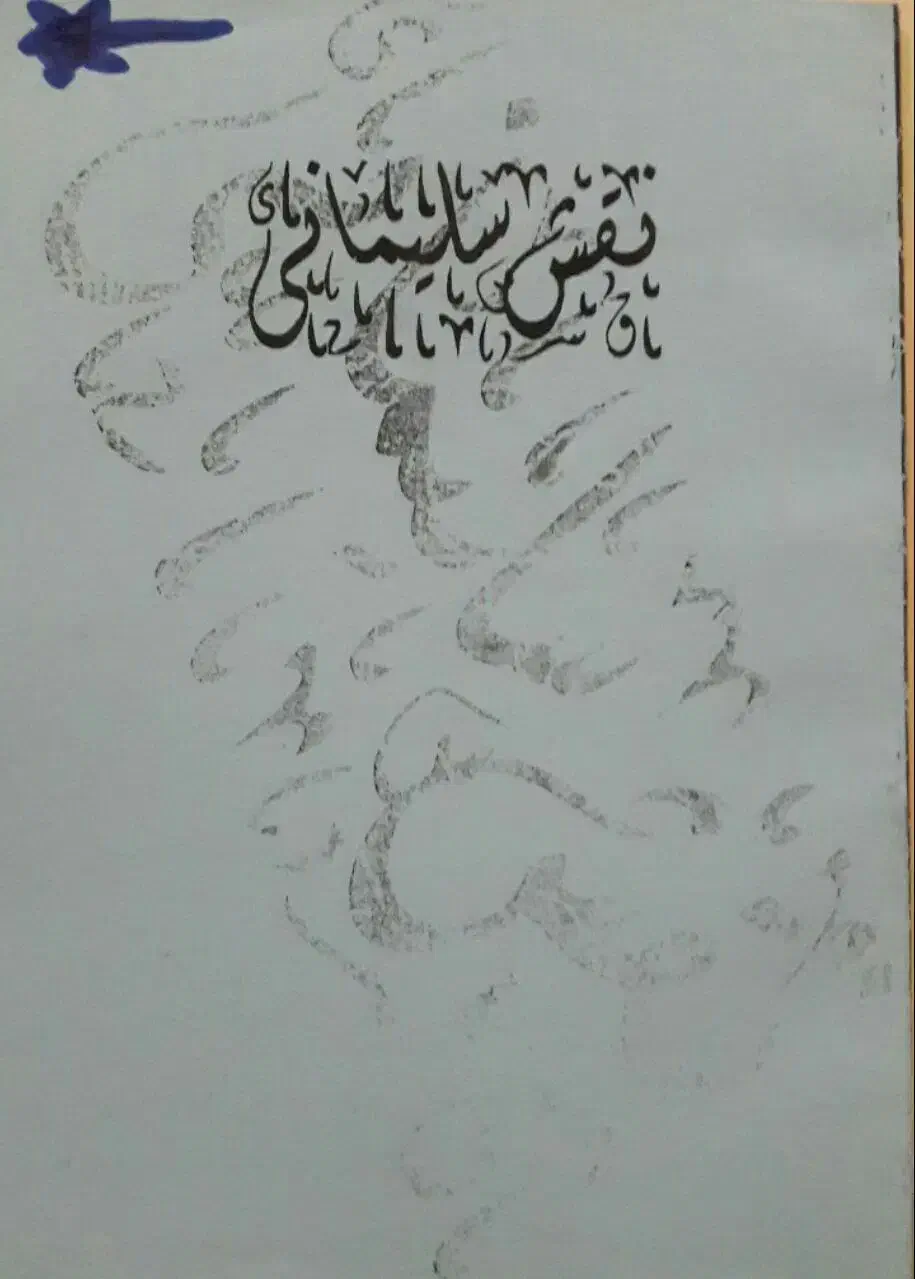 نقش سلیمانی